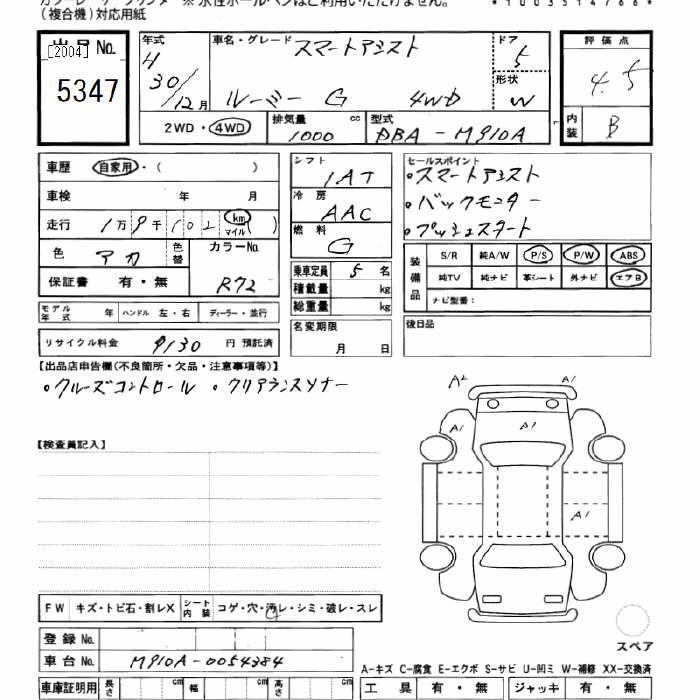 (複合機)対応用紙
*1003514766*
出品No.
[2004]
5347
年式
H
30/12月
車名・グレード
スマートアシスト
ルーミー G 4WD
ドア
5
形状
W
評価点
4.5
内装
B
2WD・4WD
排気量
1000 cc
型式
DBA-M910A
車歴 自家用・( )
車検 年 月
走行 1万9千102 km マイル ( )
色 アカ
色替
カラーNo.
R72
保証書 有・無
シフト
IAT
冷房
AAC
燃料
G
乗車定員 5 名
積載量 kg
総重量 kg
セールスポイント
・スマートアシスト
・バックモニター
・プッシュスタート
装備品
S/R 純A/W P/S P/W ABS
純TV 純ナビ 革シート 外ナビ エアB
ナビ型番:
モデル年式 年 ハンドル 左・右 ディーラー・並行
名変期限
月 日
後日品
リサイクル料金 9130 円 預託済
【出品店申告欄(不良箇所・欠品・注意事項等)】
・クルーズコントロール ・クリアランスソナー
A2
A1
A1
A1
A1
【検査員記入】
FW キズ・トビ石・割レX
シート内装 コゲ・穴・汚レ・シミ・破レ・スレ
スペア
登録No.
車台No. M910A-0054384
A-キズ C-腐食 E-エクボ S-サビ U-凹ミ W-補修 XX-交換済
車庫証明用 長さ cm 幅 cm 高さ cm
工具 有・無 ジャッキ 有・無